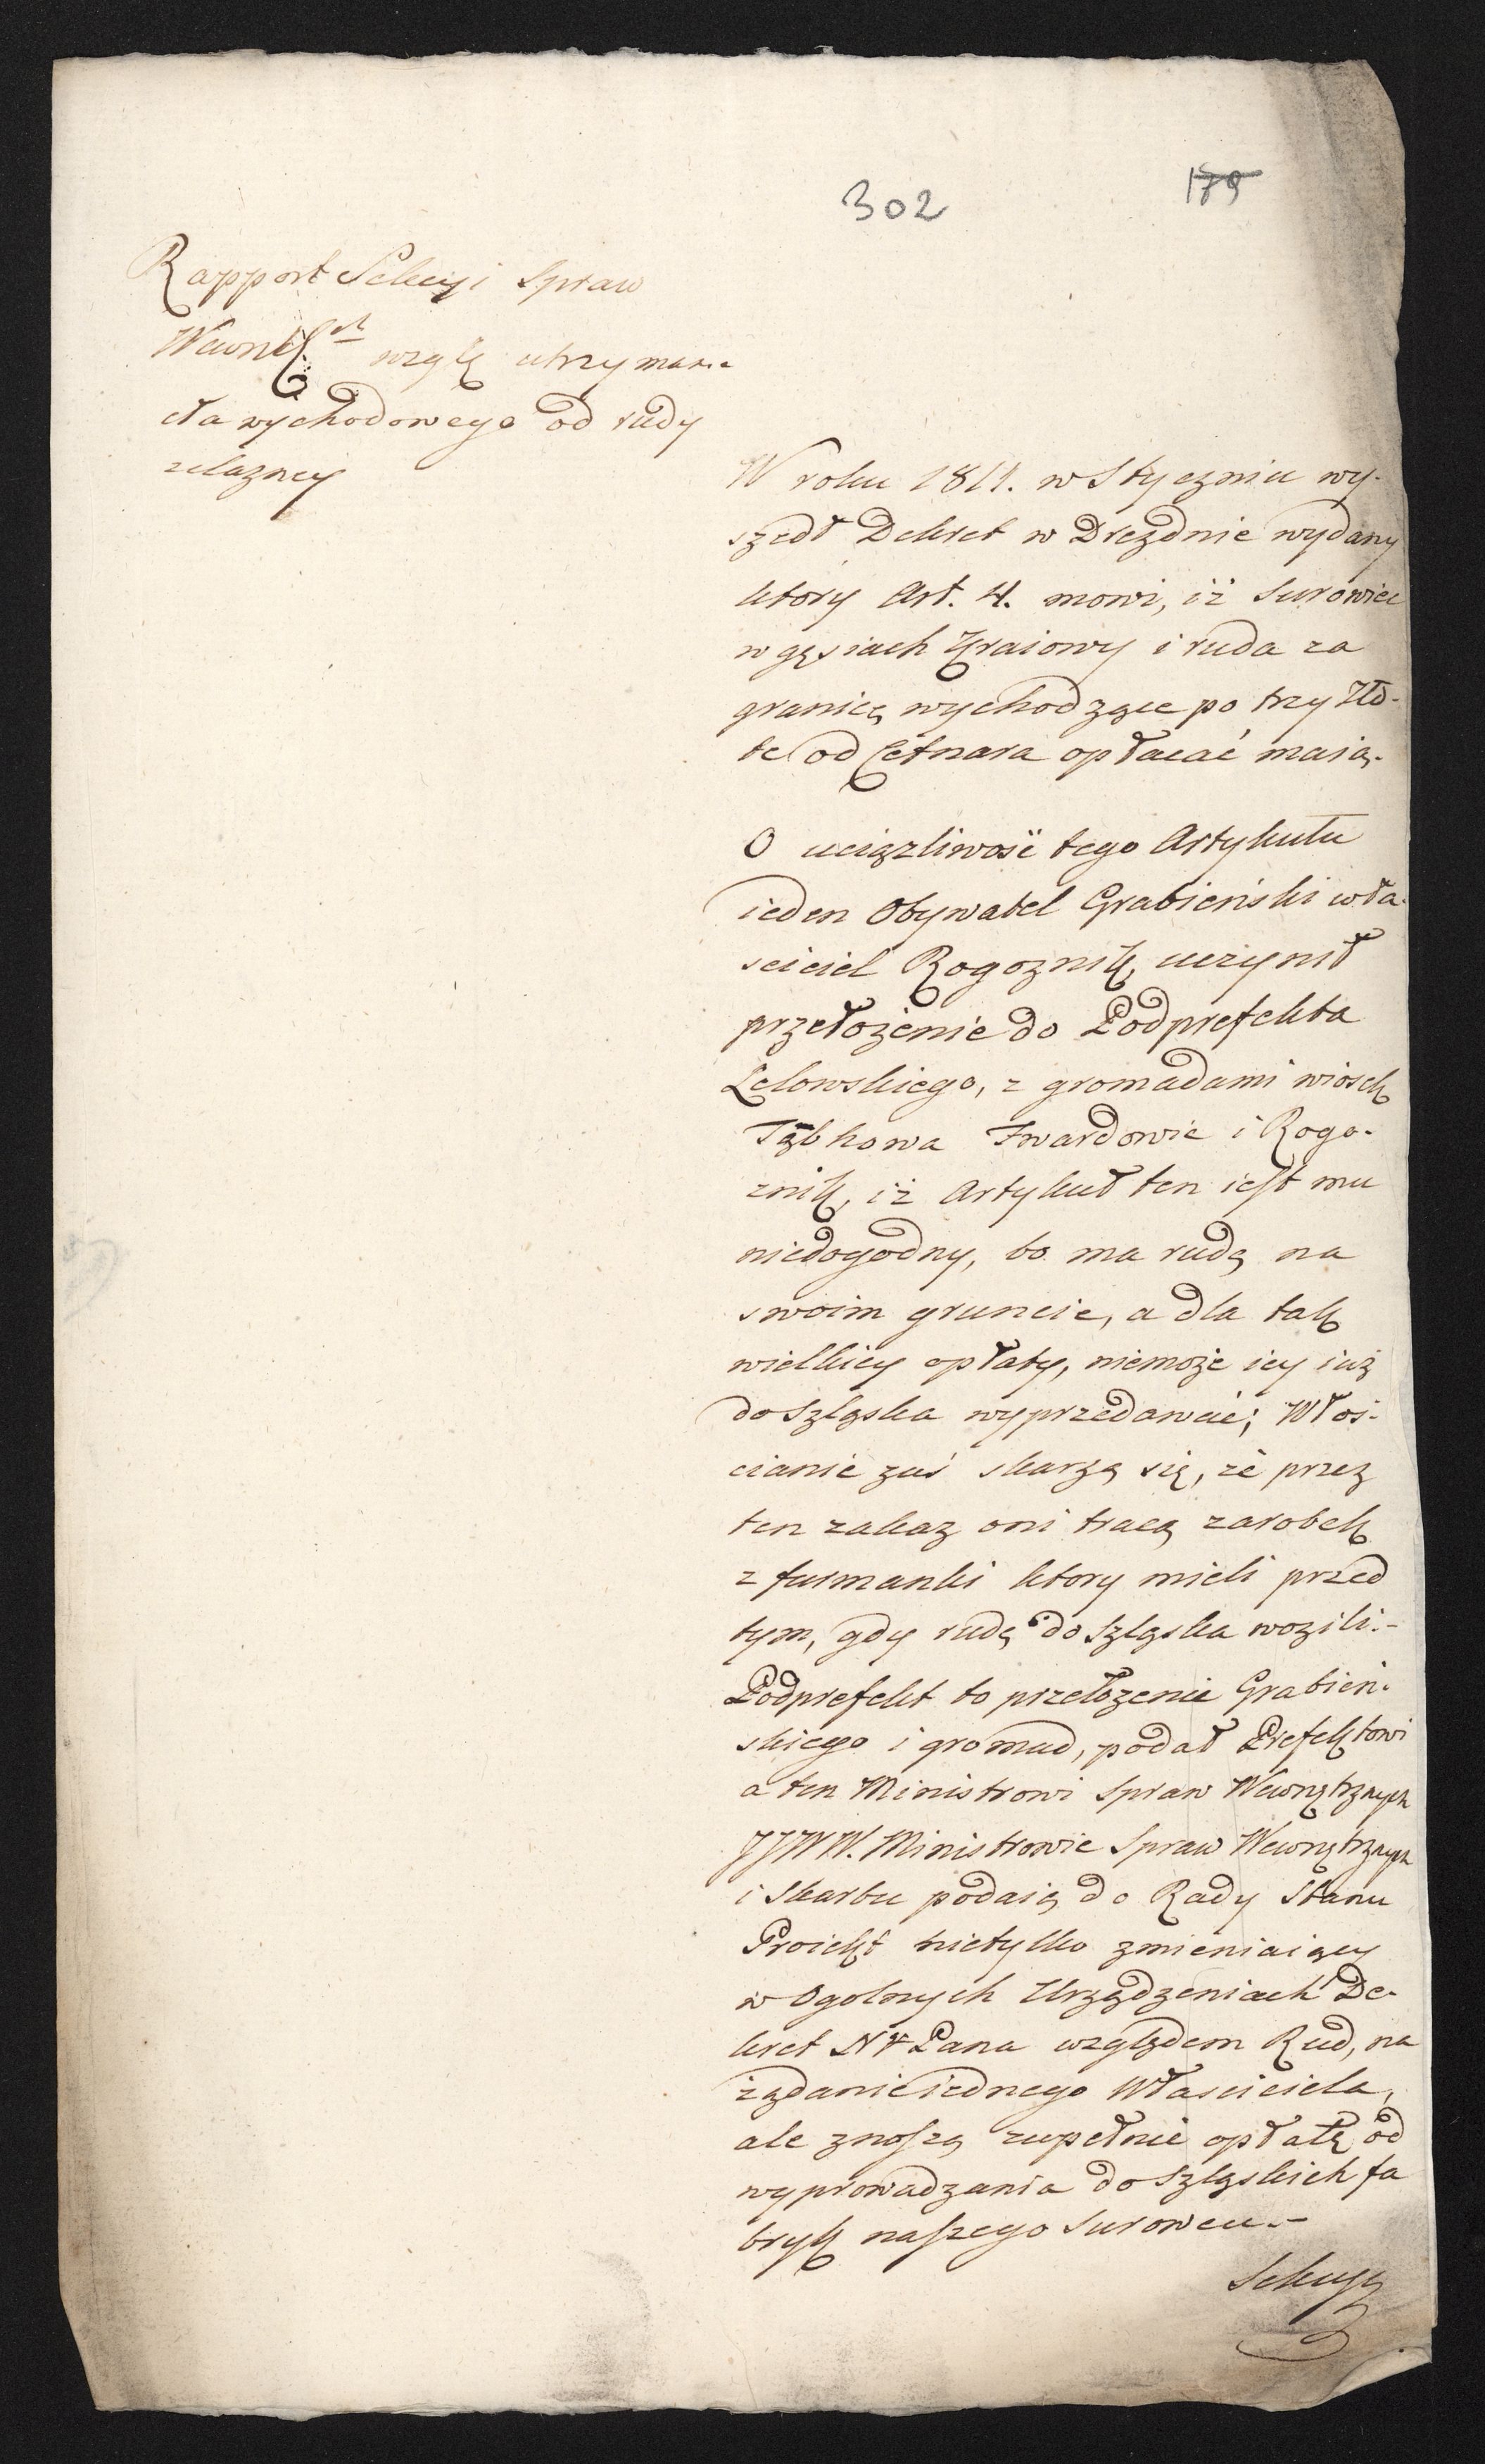 302
179
Rapport Sekcyi Spraw
Wewnęt. wzglę utrzymania
cła wychodowego od rudy
żelazney
W roku 1811. w Styczniu wy-
szedł Dekret w Drezdnie wydany
ktory Art. 4. mowi, iż surowiec
w gęsiach kraiowy i ruda za
granicę wychodzące po trzy Zło-
te od Cetnara opłacać maią.
O uciążliwość tego Artykułu
ieden Obywatel Grabieński wła-
sciciel Rogoznik, uczynił
przełożenie do Podprefekta
Lelowskiego, z gromadami wiosek
Twardowie i Rogo-
znik, iż Artykuł ten iest mu
niedogodny, bo ma rudę na
swoim gruncie, a dla tak
wielkiey opłaty, niemoże iey iuż
do Szląska wyprzedawać; Włoś-
cianie zaś skarzą się, że przez
ten zakaz oni tracą zarobek
z furmanki ktory mieli przed
tym, gdy rudę do Szląska wozili.-
Podprefekt to przełożenie Grabień-
skiego i gromad, podał Prefektowi
a ten Ministrowi Spraw Wewnętrznych
JJWW. Ministrowie Spraw Wewnętrznych
i Skarbu podaią do Rady Stanu
Proiekt nietylko zmieniaiący
w Ogolnych Urządzeniach De-
kret N Pana względem Rud, na
żądanie iednego Właściciela,
ale znoszą zupełnie opłatę od
wyprowadzania do Szląskich fa
bryk naszego Surowcu.-
Sekcya